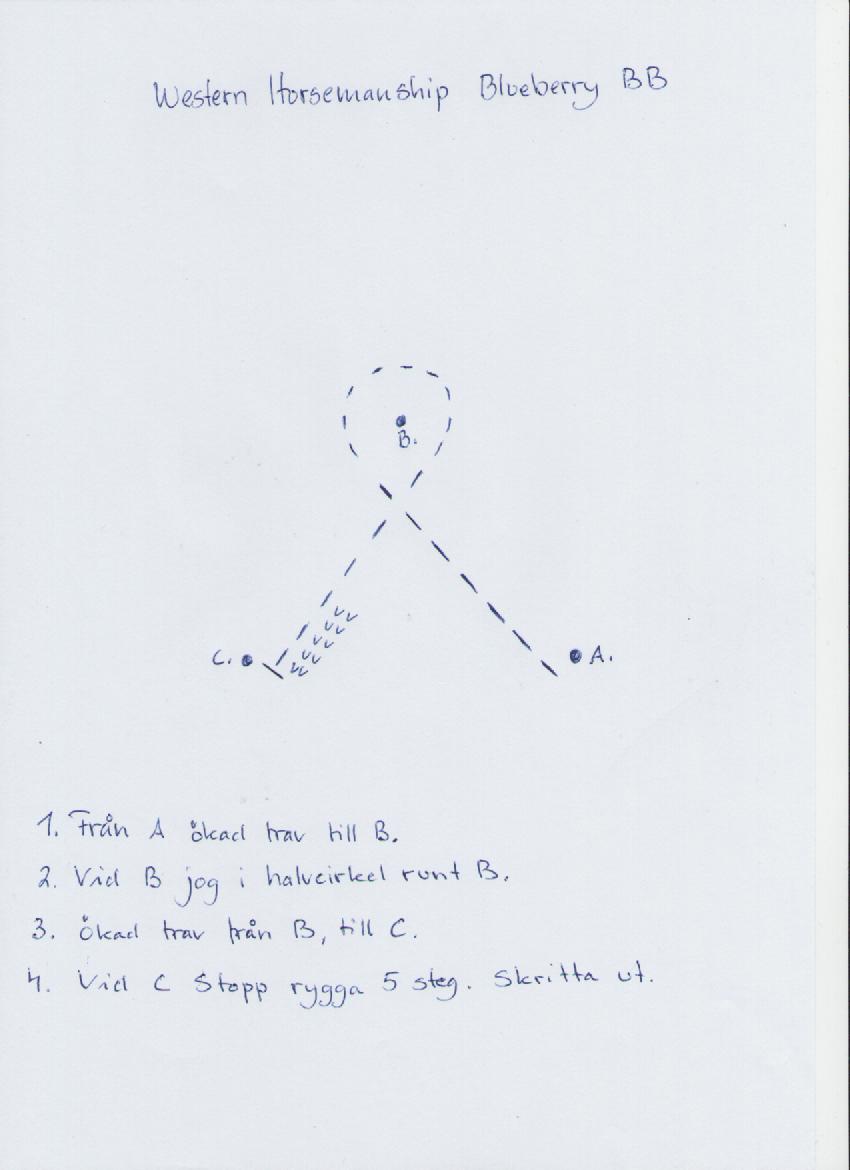 Western Horsemanship Blueberry BB
B.
C.
A.
1. Från A ökad trav till B.
2. Vid B jog i halvcirkel runt B.
3. ökad trav från B, till C.
4. Vid C Stopp rygga 5 steg. Skritta ut.